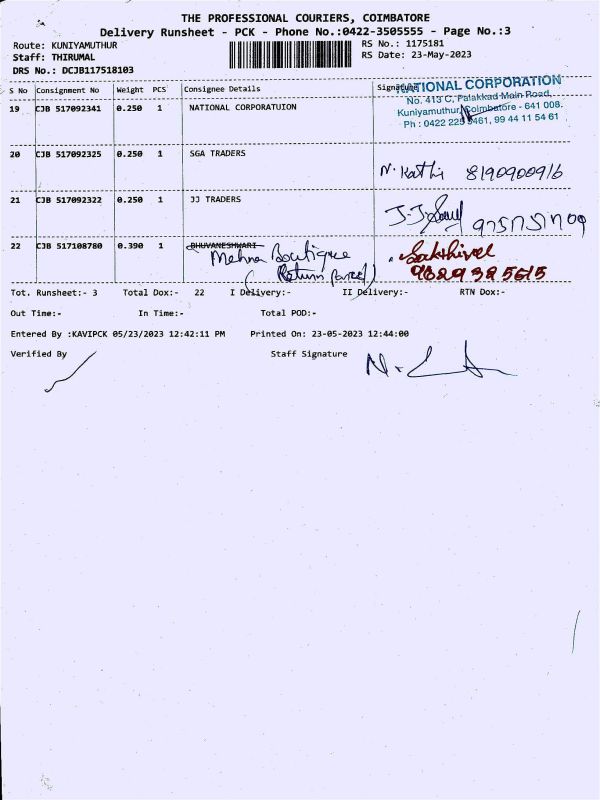 THE PROFESSIONAL COURIERS, COIMBATORE
Delivery Runsheet - PCK - Phone No.:0422-3505555 - Page No.:3
Route: KUNIYAMUTHUR RS No.: 1175181
Staff: THIRUMAL RS Date: 23-May-2023
DRS No.: DCJB117518103
S No Consignment No Weight PCS Consignee Details Signature
NATIONAL CORPORATION
No. 413 C, Palakkad Main Road,
Kuniyamuthur, Coimbatore - 641 008.
19 CJB 517092341 0.250 1 NATIONAL CORPORATUION
Ph : 0422 225 3461, 99 44 11 54 61
20 CJB 517092325 0.250 1 SGA TRADERS
N. Kathi 8190900916
21 CJB 517092322 0.250 1 JJ TRADERS
J-J
22 CJB 517108780 0.390 1 BHUVANESHWARI
Mehna Boutique Sakthivel
(Return Parcel) 9889385615
Tot. Runsheet:- 3 Total Dox:- 22 I Delivery:- II Delivery:- RTN Dox:-
Out Time:- In Time:- Total POD:-
Entered By :KAVIPCK 05/23/2023 12:42:11 PM Printed On: 23-05-2023 12:44:00
Verified By Staff Signature